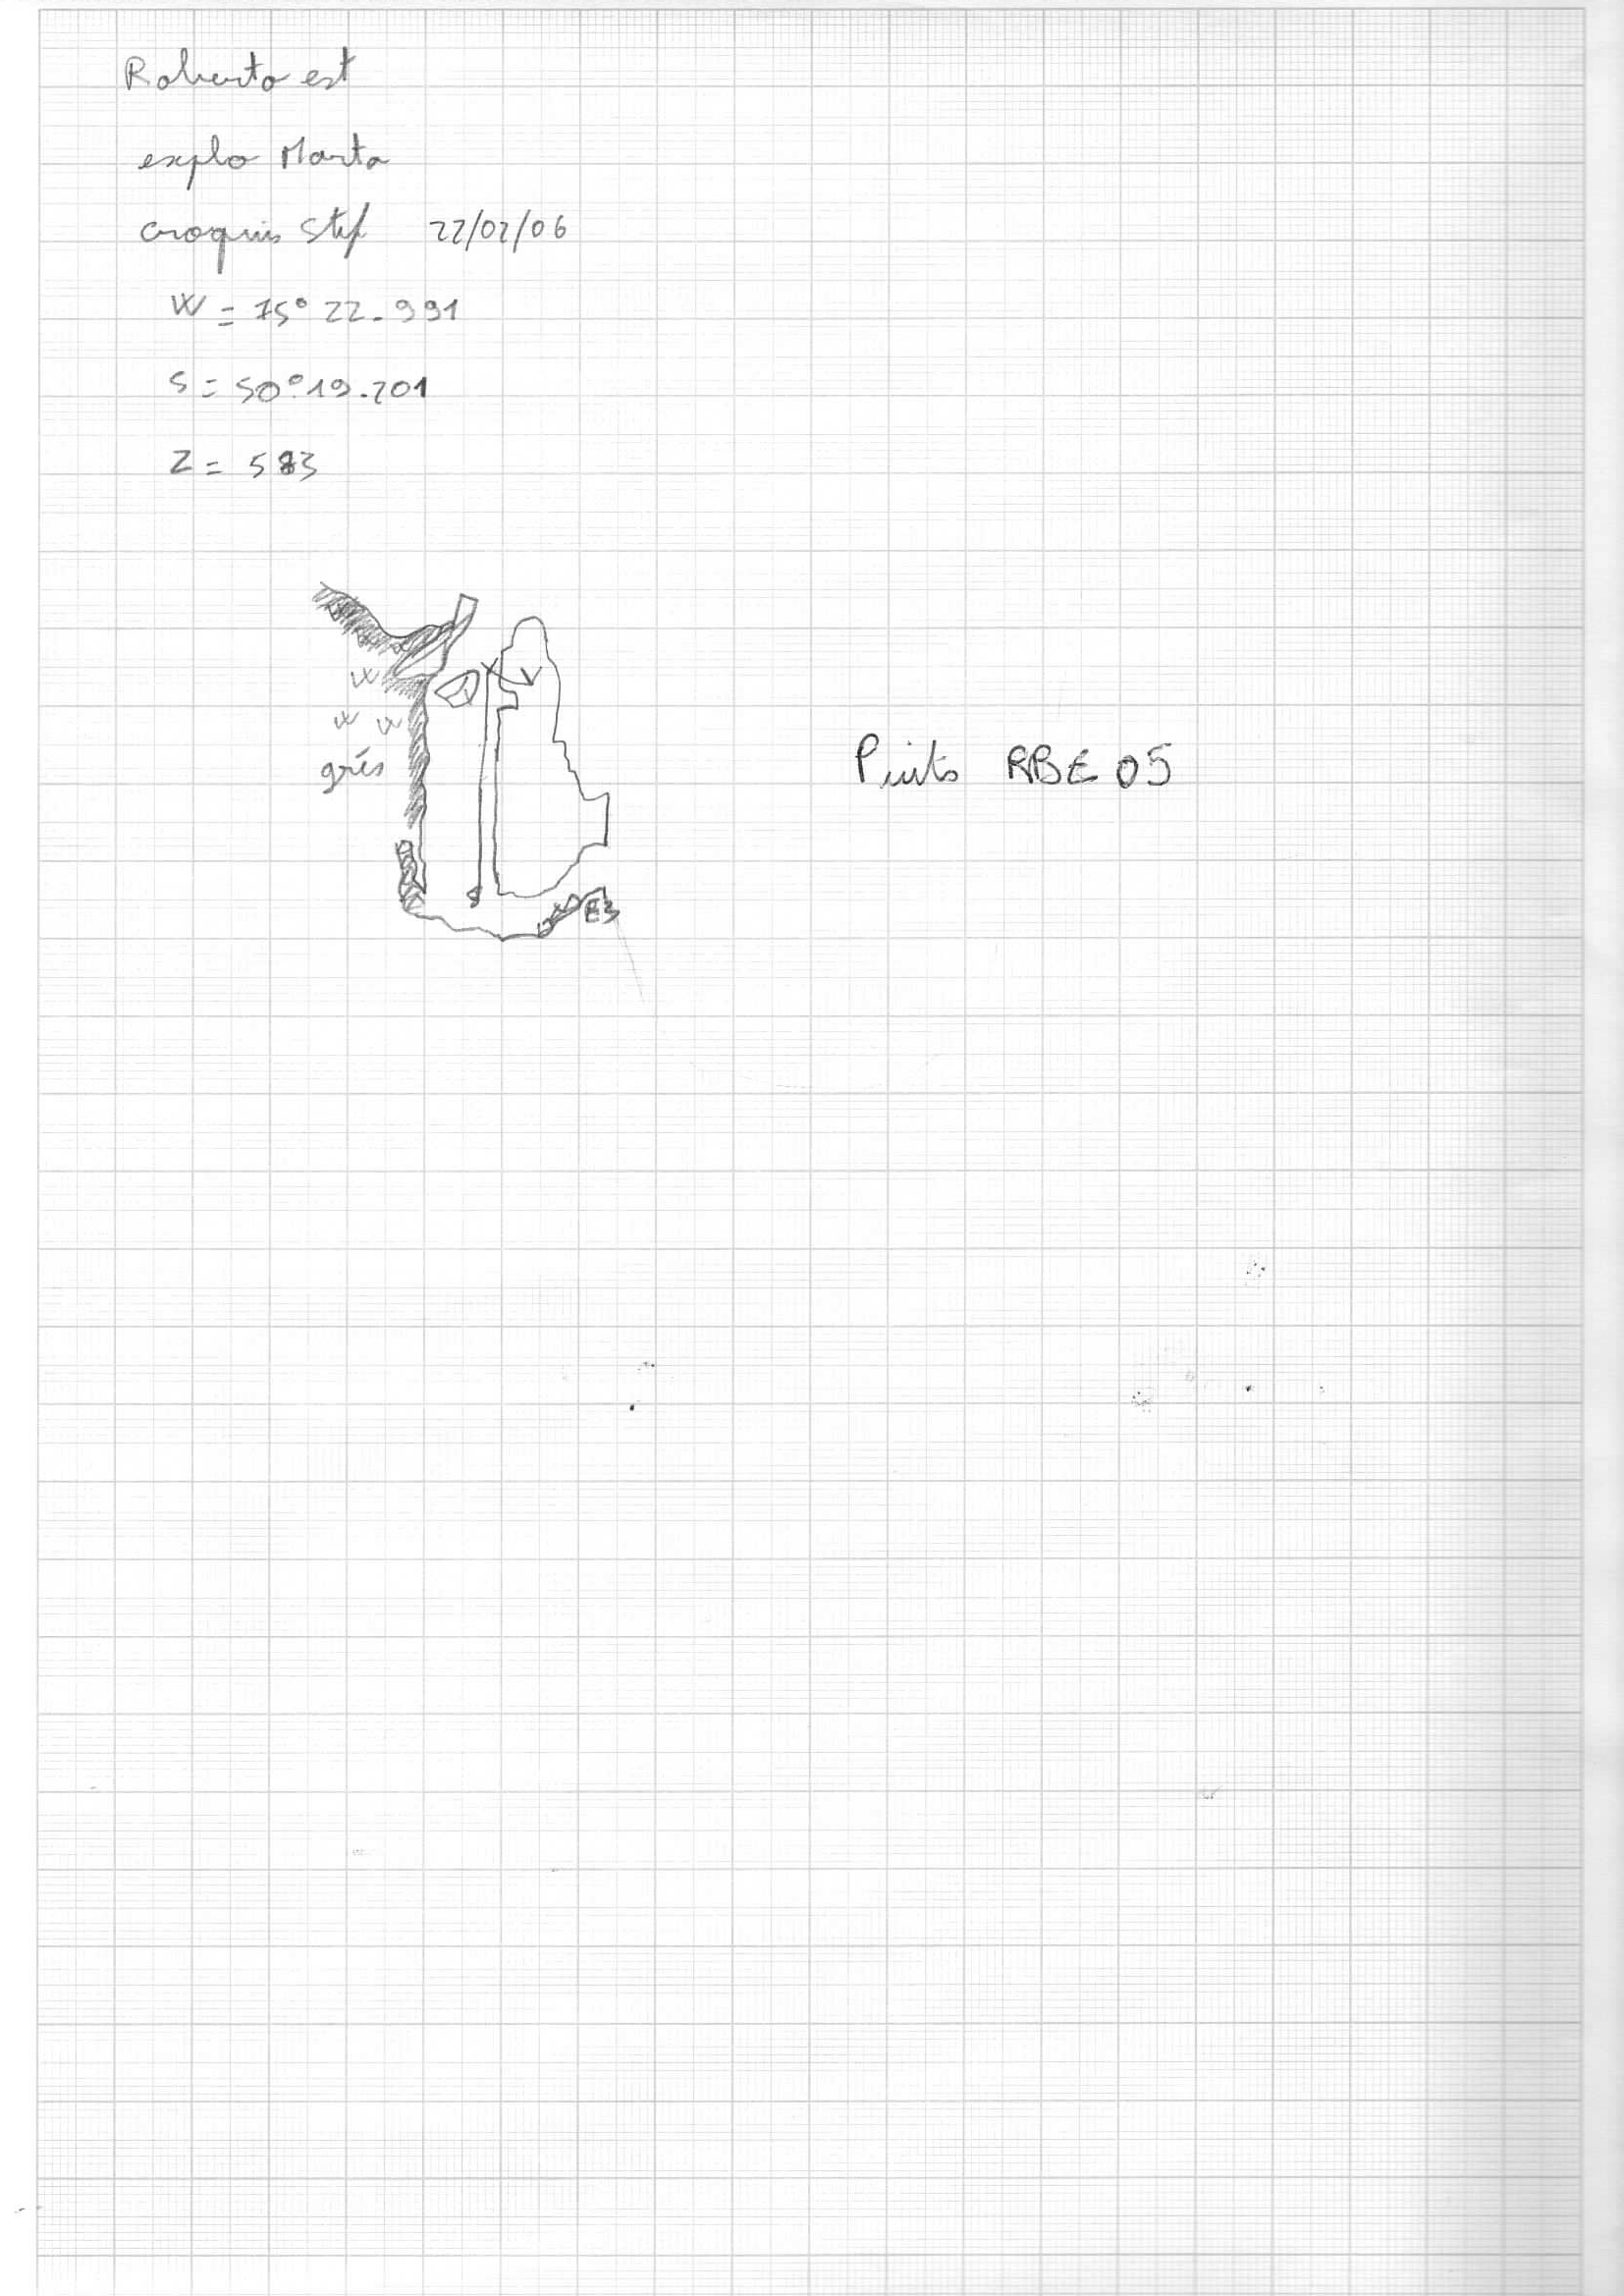 Roberto est
explo Marta
croquis Stef 22/02/06
W = 75° 22.991
S = 50° 19.201
Z = 583
grés
Puits RBE 05
E3